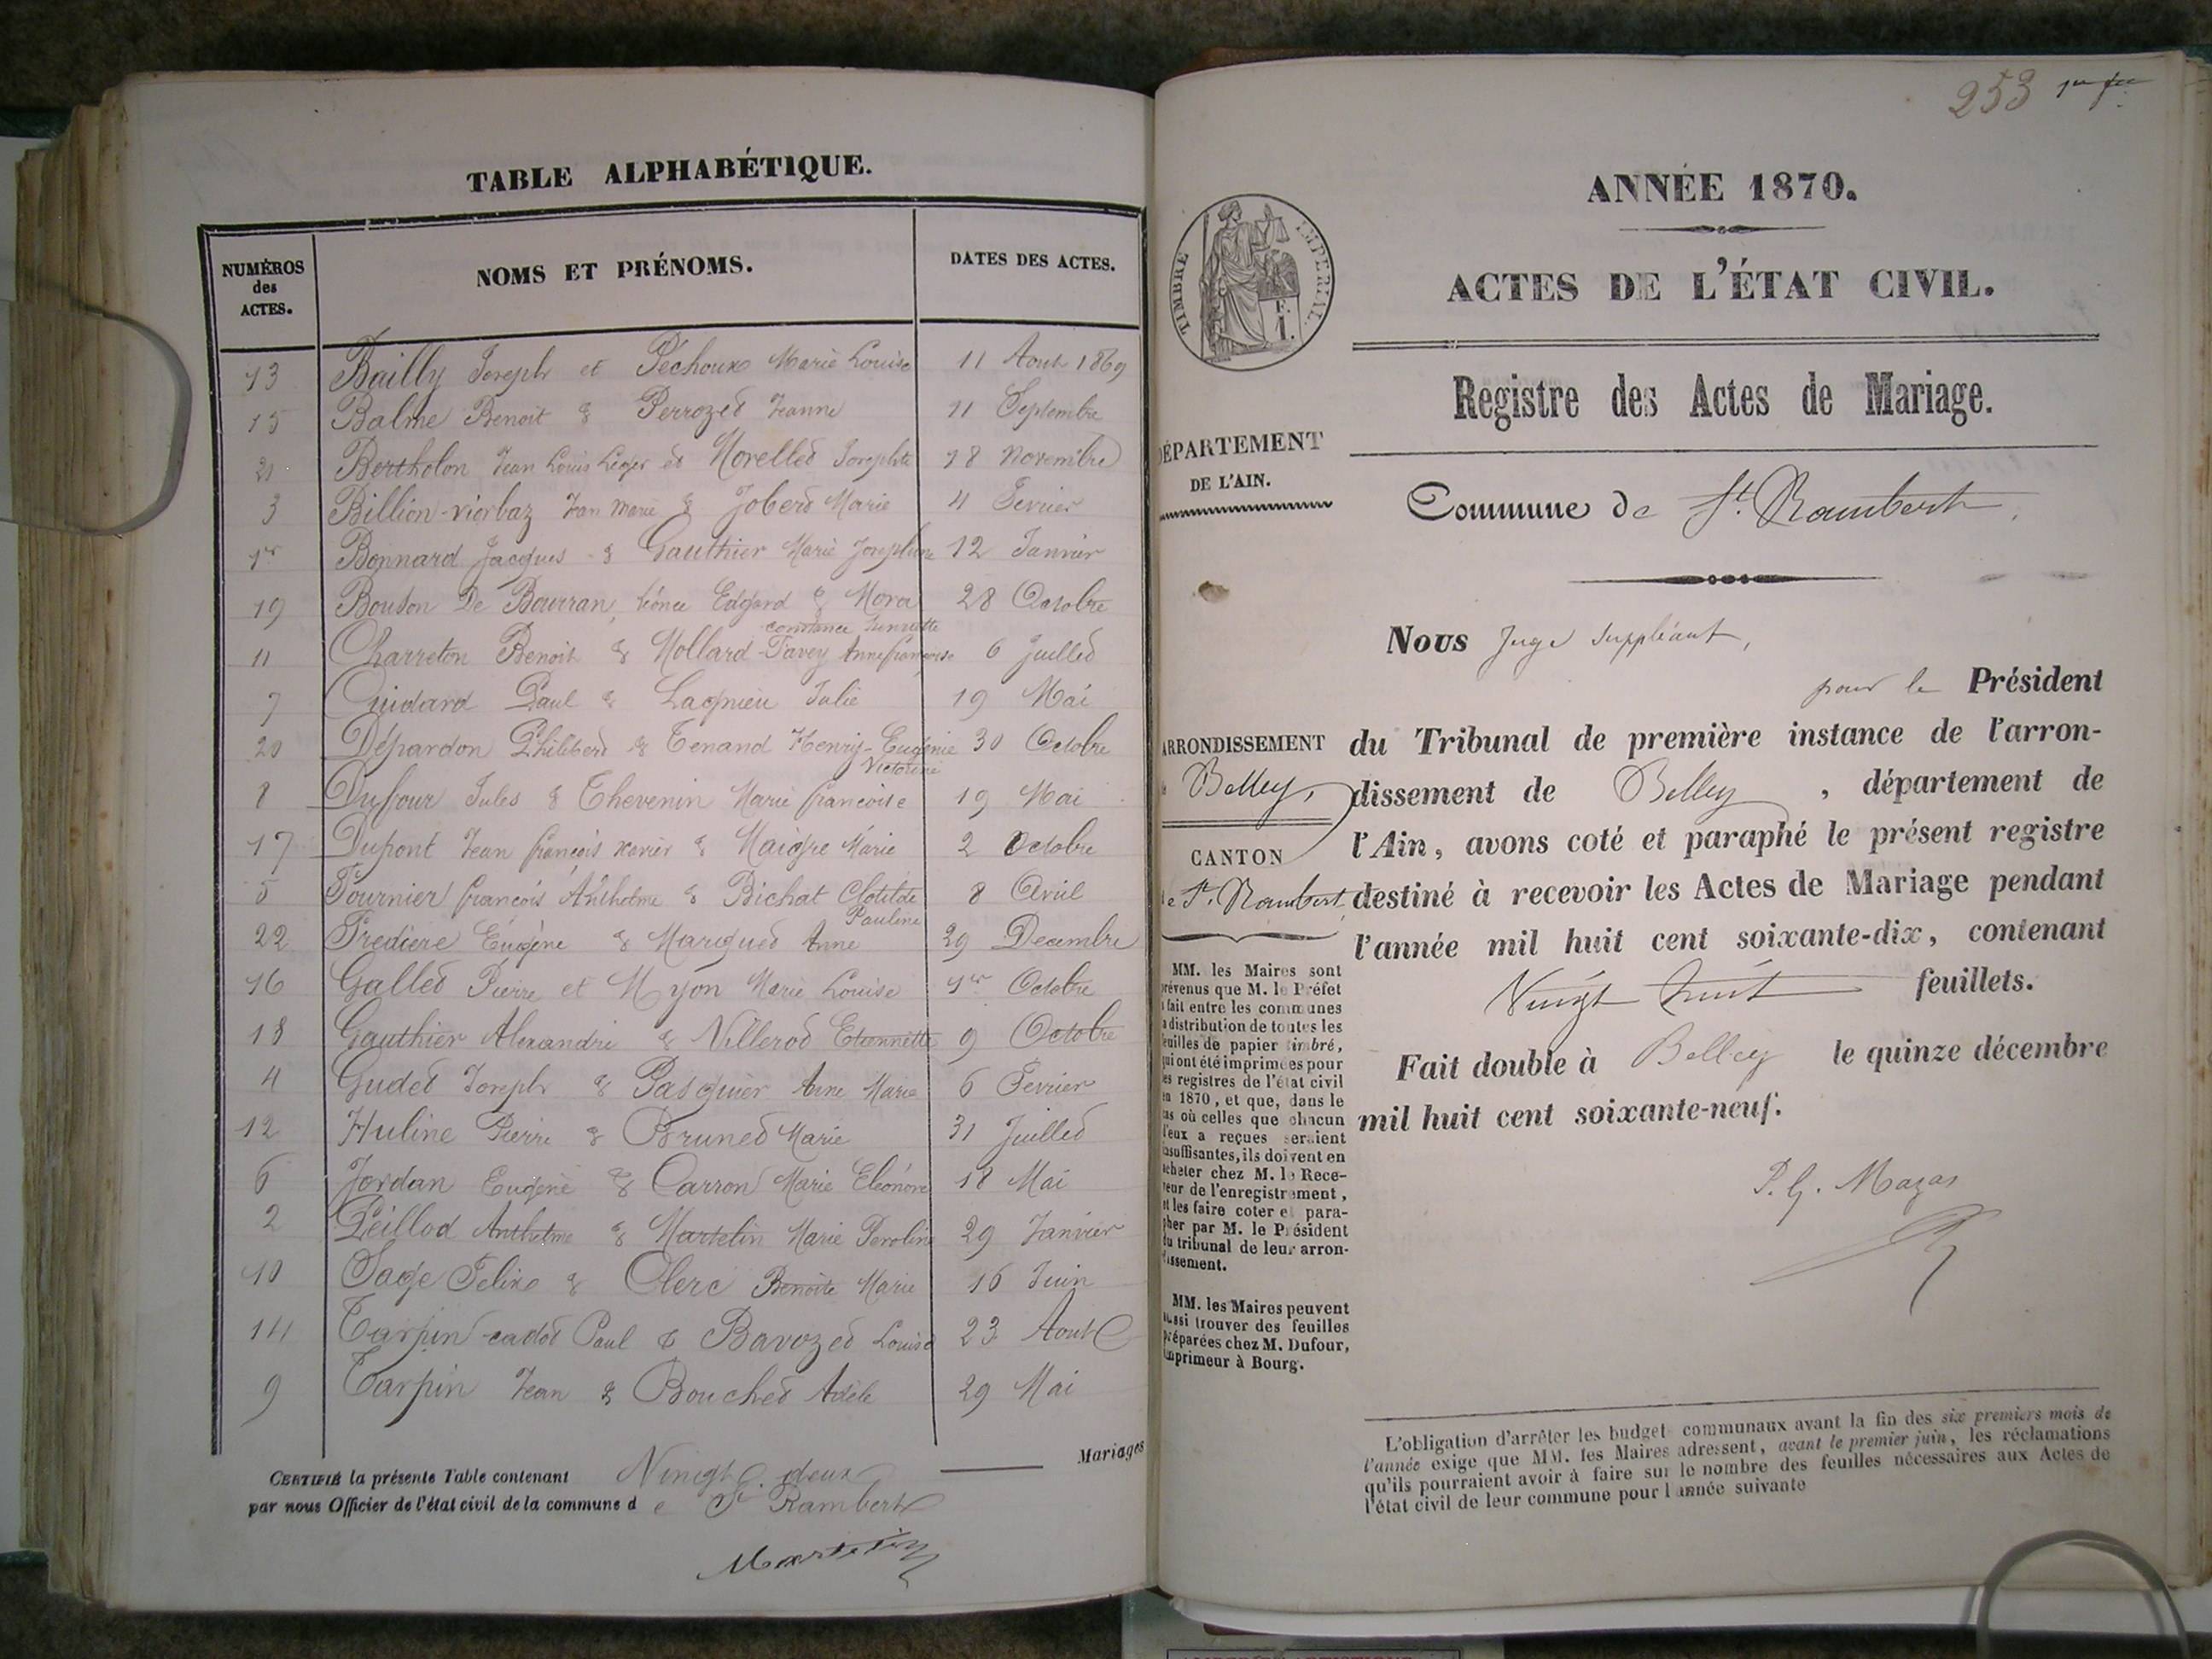 TABLE ALPHABÉTIQUE.
NUMÉROS des ACTES. NOMS ET PRÉNOMS. DATES DES ACTES.
13 Bailly Joseph et Péchoux Marie Louise 11 Aout 1869
15 Balme Benoit & Perrozet Jeanne 11 Septembre
21 Bertholon Jean Louis Léger et Morellet Josephte 18 Novembre
3 Billion-viorbaz Jean Marie & Jobert Marie 4 Fevrier
1er Bonnard Jacques & Gauthier Marie Josephine 12 Janvier
19 Bouton De Bourran, Léonce Edgard & Mora 28 Octobre
constance henriette
11 Charreton Benoit & Mollard-Tavey Anne françoise 6 Juillet
7 Guidard Paul & Lagnieu Julie 19 Mai
20 Dépardon Philibert & Tenand Henriy-Eugénie 30 Octobre
Victorine
8 Dufour Jules & Thevenin Marie françoise 19 Mai
17 Dupont Jean françois xavier & Maigre Marie 2 Octobre
5 Fournier françois Anthelme & Bichat Clotilde 8 Avril
Pauline
22 Fredière Eugène & Marquet Anne 29 Decembre
16 Gallet Pierre et Myon Marie Louise 1er Octobre
18 Gauthier Alexandre & Villerod Etiennette 9 Octobre
4 Gudet Joseph & Pasquier Anne Marie 6 Fevrier
12 Huline Pierre & Brunet Marie 31 Juillet
6 Jordan Eugène & Carron Marie Eléonore 18 Mai
2 Peillod Anthelme & Martelin Marie Peroline 29 Janvier
10 Sage Felix & Clerc Benoite Marie 16 Juin
14 Tarpin-cadot Paul & Bavozet Louise 23 Aout
9 Tarpin Jean & Bouchet Adèle 29 Mai
CERTIFIÉ la présente Table contenant Vingt deux Mariages
par nous Officier de l'état civil de la commune de St Rambert
Martelin
253 1er fet
ANNÉE 1870.
ACTES DE L'ÉTAT CIVIL.
TIMBRE IMPERIAL.
Registre des Actes de Mariage.
DÉPARTEMENT
DE L'AIN.
Commune de St. Rambert
Nous Juge suppléant,
pour le Président
du Tribunal de première instance de l'arron-
dissement de Belley, département de
l'Ain, avons coté et paraphé le présent registre
destiné à recevoir les Actes de Mariage pendant
l'année mil huit cent soixante-dix, contenant
Vingt huit feuillets.
Fait double à Belley le quinze décembre
mil huit cent soixante-neuf.
P. G. Mazas
ARRONDISSEMENT
de Belley,
CANTON
de St. Rambert
MM. les Maires sont
prévenus que M. le Préfet
a fait entre les communes
la distribution de toutes les
feuilles de papier timbré,
qui ont été imprimées pour
les registres de l'état civil
en 1870, et que, dans le
cas où celles que chacun
d'eux a reçues seraient
insuffisantes, ils doivent en
acheter chez M. le Rece-
veur de l'enregistrement,
et les faire coter et para-
pher par M. le Président
du tribunal de leur arron-
dissement.
MM. les Maires peuvent
aussi trouver des feuilles
préparées chez M. Dufour,
imprimeur à Bourg.
L'obligation d'arrêter les budget communaux avant la fin des six premiers mois de
l'année exige que MM. les Maires adressent, avant le premier juin, les réclamations
qu'ils pourraient avoir à faire sur le nombre des feuilles nécessaires aux Actes de
l'état civil de leur commune pour l'année suivante